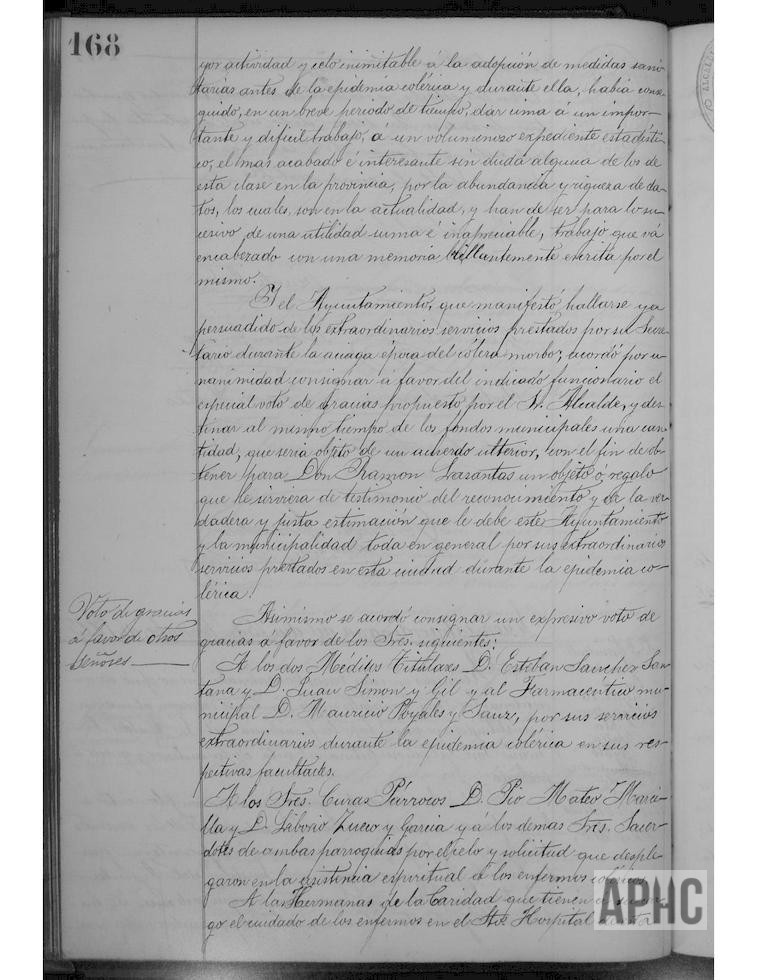 168
yor actividad y celo inimitable á la adopción de medidas sani-
tarias antes de la epidemia colérica y durante ella, habia conse-
guido, en un breve periodo de tiempo, dar cima á un impor-
tante y dificil trabajo, á un voluminoso expediente estadísti-
co, el mas acabado é interesante sin duda alguna de los de
esta clase en la provincia, por la abundancia y riqueza de da-
tos, los cuales, son en la actualidad, y han de ser para lo su-
cesivo de una utilidad suma é inapreciable, trabajo que vá
encabezado con una memoria brillantemente escrita por el
mismo.
Y el Ayuntamiento, que manifestó hallarse ya
persuadido de los extraordinarios servicios prestados por su Secre-
tario durante la aciaga época del cólera morbo, acordó por u-
nanimidad consignar á favor del indicado funcionario el
especial voto de gracias propuesto por el Sr. Alcalde, y des-
tinar al mismo tiempo de los fondos municipales una can-
tidad, que seria objeto de un acuerdo ulterior, con el fin de ob-
tener para Don Ramon Lasantas un objeto ó regalo
que le sirviera de testimonio del reconocimiento y de la ver-
dadera y justa estimación que le debe este Ayuntamiento
y la municipalidad toda en general por sus extraordinarios
servicios prestados en esta ciudad durante la epidemia co-
lérica.
Voto de gracias
á favor de otros
señores
Asimismo se acordó consignar un expresivo voto de
gracias á favor de los Sres. siguientes:
A los dos Medicos Titulares D. Esteban Sanchez San-
tana y D. Juan Simon y Gil y al Farmaceútico mu-
nicipal D. Mauricio Poyales y Sanz, por sus servicios
extraordinarios durante la epidemia colérica en sus res-
pectivas facultades.
A los Sres. Curas Párrocos D. Pio Mateo Marci-
lla y D. Liborio Zueco y Garcia y á los demas Sres. Sacer-
dotes de ambas parroquias por el celo y solicitud que desple-
garon en la asistencia espiritual a los enfermos coléricos.
A las Hermanas de la Caridad que tienen á su car-
go el cuidado de los enfermos en el Sto. Hospital
APHC